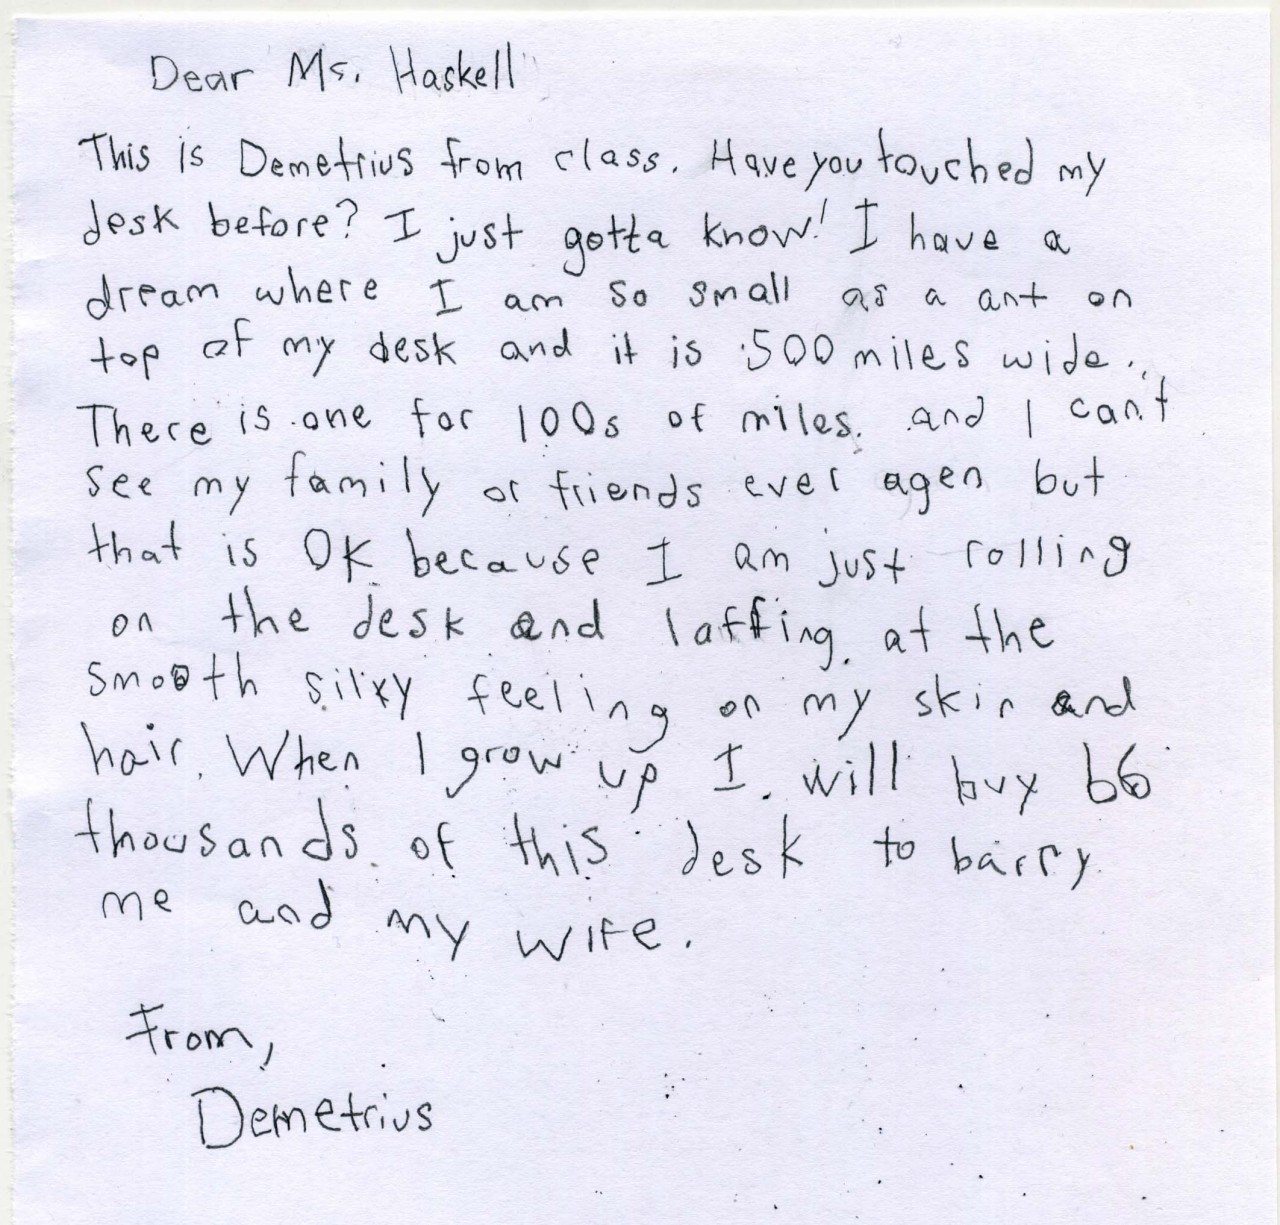 Dear Ms. Haskell
This is Demetrius from class. Have you touched my
desk before? I just gotta know! I have a
dream where I am so small as a ant on
top of my desk and it is 500 miles wide.
There is one for 100s of miles. and I can't
see my family or friends ever agen but
that is OK because I am just rolling
on the desk and laffing at the
smooth silky feeling on my skin and
hair. When I grow up I will buy 66
thousands of this desk to barry
me and my wife.
From,
Demetrius